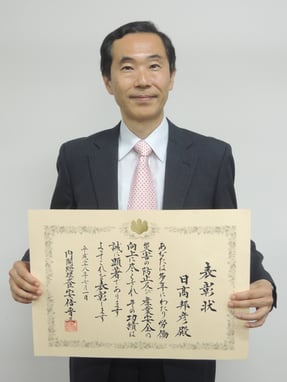 表彰状
日高邦彦殿
あなたは多年にわたり労働
災害の防止及び産業安全の
向上に尽くされその功績は
誠に顕著であります
よってこれを表彰します
内閣総理大臣安倍晋三